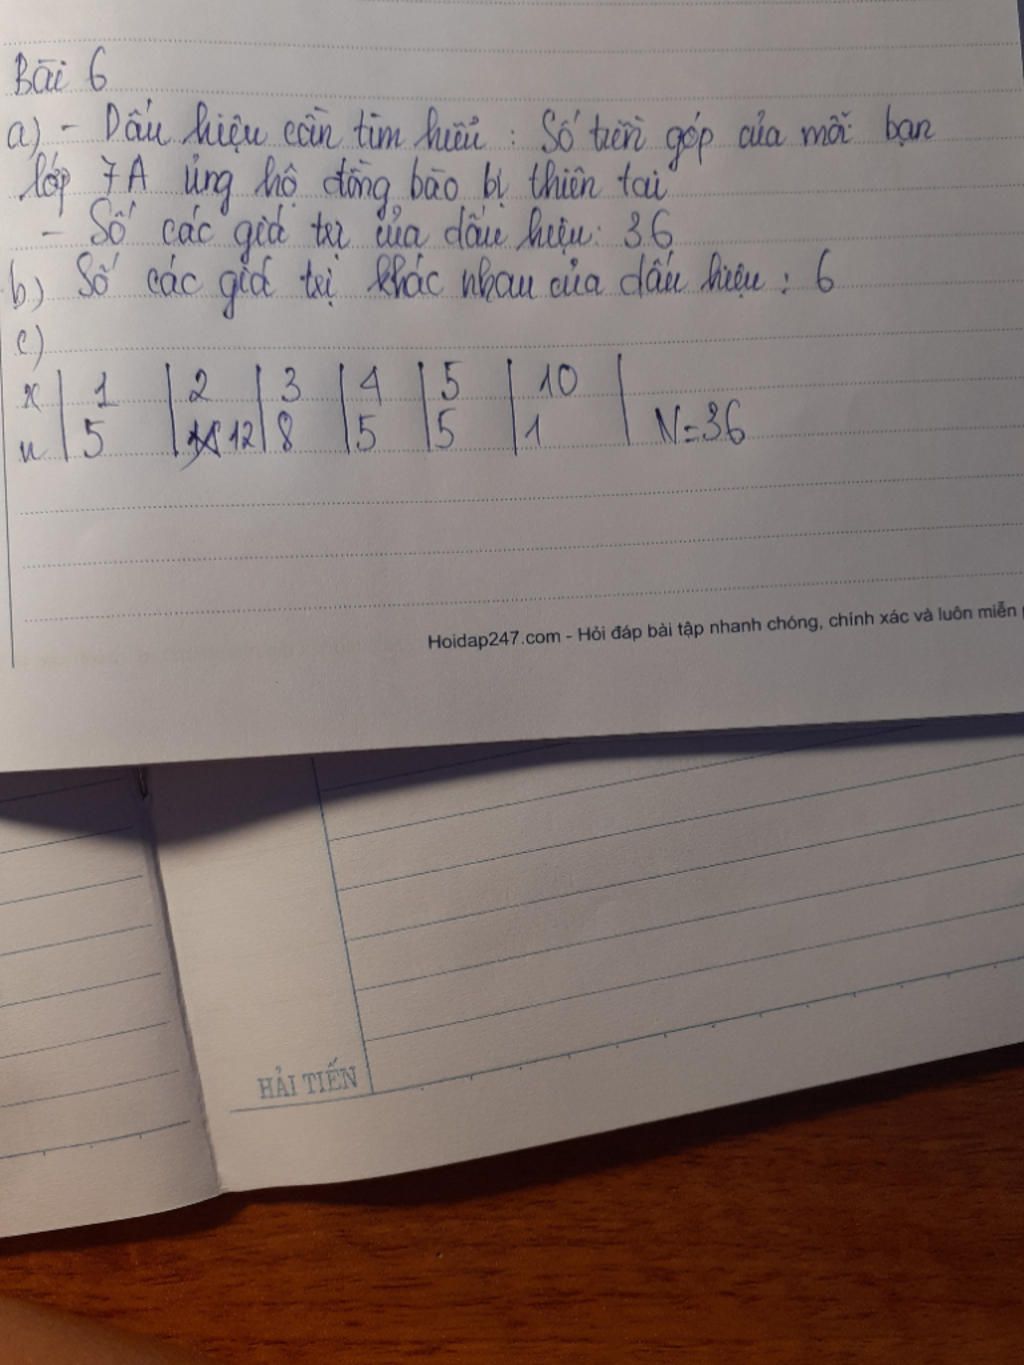 Bài 6
a) - Dấu hiệu cần tìm hiểu : Số tiền góp của mỗi bạn
lớp 7A ủng hộ đồng bào bị thiên tai
- Số các giá trị của dấu hiệu: 36
b) Số các giá trị khác nhau của dấu hiệu : 6
c)
x | 1 | 2 | 3 | 4 | 5 | 10 |
n | 5 | 12 | 8 | 5 | 5 | 1 | N=36
Hoidap247.com - Hỏi đáp bài tập nhanh chóng, chính xác và luôn miễn
HẢI TIẾN